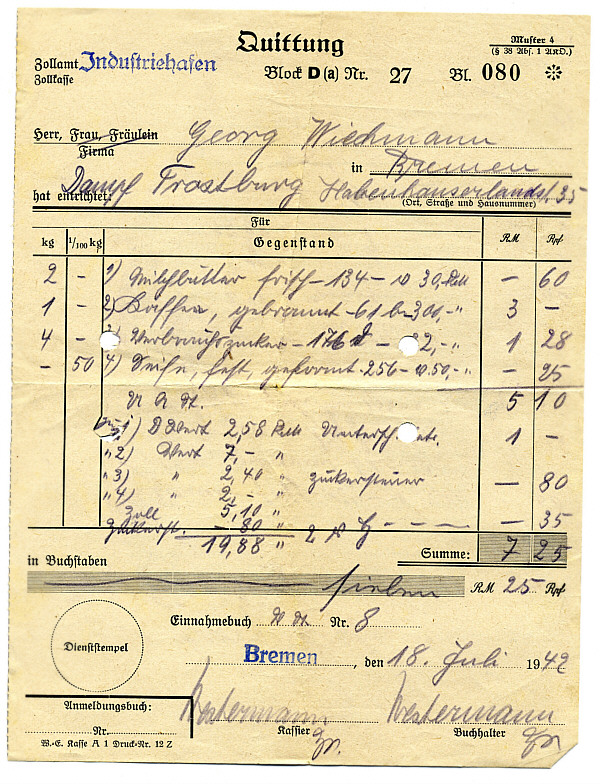 Quittung
Muster 4
(§ 38 Abs. 1 AKO.)
Zollamt Industriehafen
Zollkasse
Block D (a) Nr. 27 Bl. 080
Herr, Frau, Fräulein Georg Wiechmann
Firma
in Bremen
Dampf Trostburg Habenhauserlandst. 35
hat entrichtet: (Ort, Straße und Hausnummer)
Für
kg 1/100 kg Gegenstand RM Rpf
2 – 1) Milchbutter frisch – 134 – 30,- RM – 60
1 – 2) Kaffee, gebrannt – 61 b – 300,- " 3 –
4 – 3) Verbrauchszucker – 176 – 32,- " 1 28
– 50 4) Seife, fest, geformt – 256 – 50,- " – 25
5 10
1) Wert 2,58 RM 1 –
" 2) Wert 7,- "
" 3) " 2,40 " Zuckersteuer – 80
" 4) " 2,- "
Zoll 5,10 " – 35
Zuckerst. -80 "
19,88 "
Summe: 7 25
in Buchstaben
sieben RM 25 Rpf
Einnahmebuch Nr. 8
Dienststempel
Bremen, den 18. Juli 1942
Anmeldungsbuch:
Nr.
Westermann Westermann
Kassier Buchhalter
W.-E. Kasse A 1 Druck-Nr. 12 Z